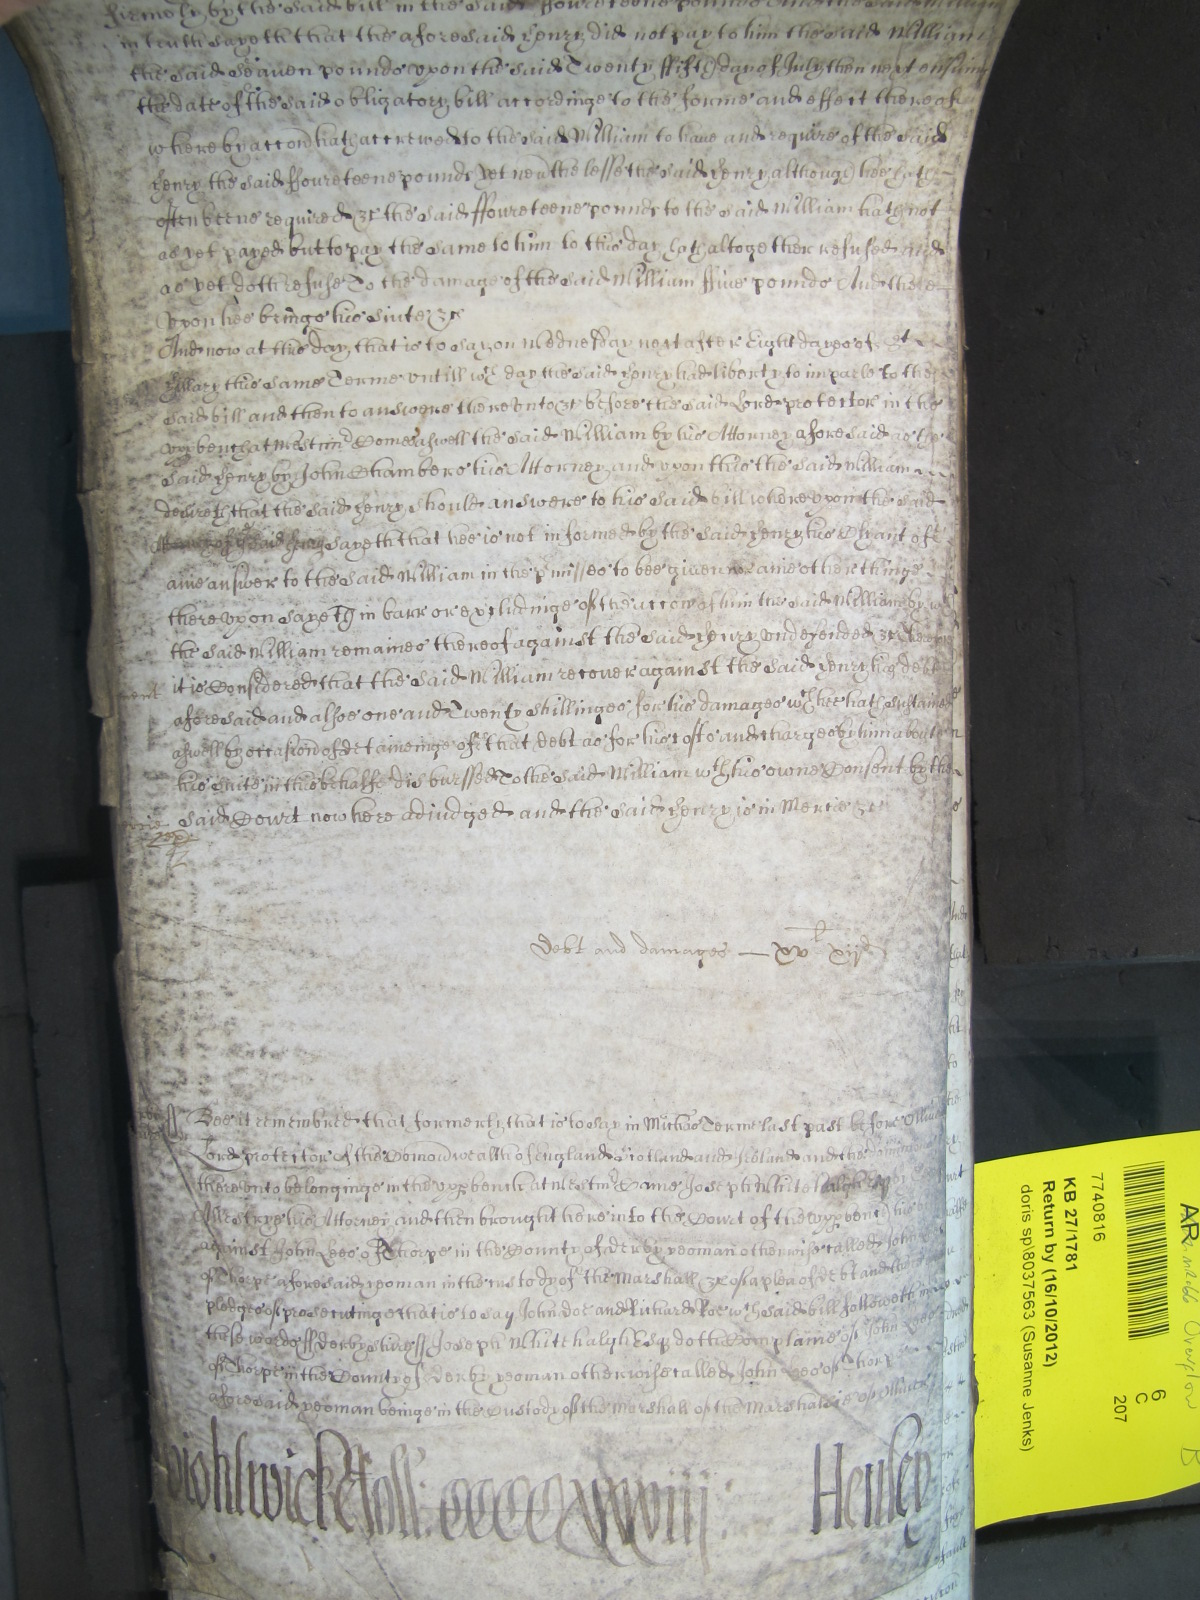 firmely by the said bill in the said ffoureteene pounds And the said William
in truth sayeth that the aforesaid Henry did not pay to him the said William
the said Seaven pounds upon the said Twenty ffifth day of July then next ensuing
the date of the said obligatory bill accordinge to the forme and effect thereof
whereby accon hath accrewed to the said William to have and require of the said
Henry the said ffoureteene pounds yet nev'thelesse the said Henry although hee hath
often beene required &c the said ffoureteene pounds to the said William hath not
as yet payed but to pay the same to him to this day hath altogether refused and
as yet doth refuse To the damage of the said William ffive pounds And there
upon hee brings his suite &c
And now at this day that is to say on Wednesday next after Eight dayes of St
Hillary this same Terme untill wch day the said Henry had liberty to imparle to the
said bill and then to answere thereunto &c before the said Lord protector in the
upp bench at Westmr Comes aswell the said William by his Attorney aforesaid as the
said Henry by John Chambers his Attorney and upon this the said William
desireth that the said Henry should answere to his said bill whereupon the said
Attorney of ye said Henry sayeth that hee is not informed by the said Henry his Clyant of
anie answer to the said William in the p'misses to bee given nor anie other thinge
thereupon sayeth in barr or excludinge of the accon of him the said William by wch
the said William remaines thereof against the said Henry undefended &c Therefore
it is Considered that the said William recover against the said Henry his debt
aforesaid and alsoe one and Twenty shillinges for his damages wch hee hath sustained
aswell by occasion of detaineinge of that debt as for his costs and charges by him about
his suite in this behalfe disburssed To the said William wth his owne Consent by the
said Court now here adjudged and the said Henry is in Mercie &c
Debt and damages — xvl xijd
Bee it remembred that formerly that is to say in Michas Terme last past before Olliver
Lord protector of the Comonwealth of England Scotland and Ireland and the dominions
thereunto belonginge in the upp bench at Westmr Came Joseph Whitehalgh Esq by
Westry his Attorney and then brought here into the Court of the upp bench his
against John Lees of Thorpe in the County of derby yeoman otherwise called John
of Thorpe aforesaid yeoman in the custody of the Marshall &c of a plea of debt and there are
pledges of prosecutinge that is to say John doe and Richard Roe wch said bill followeth in
these words ss derbyshire ss Joseph Whitehalgh Esq doth Complaine of John Lees
of Thorpe in the County of derby yeoman otherwise called John Lees of Thorpe
aforesaid yeoman beinge in the Custody of the Marshall of the Marshalsie of Olliver
Wightwick Roll: ccccxxviij Henley
7740816
KB 27/1781
Return by (16/10/2012)
doris sp\8037563 (Susanne Jenks)
6
C
207